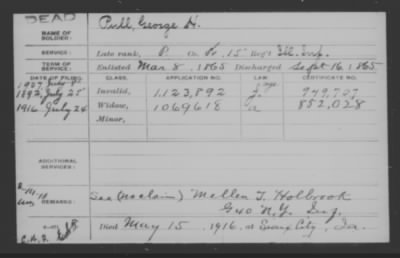 DEAD
NAME OF SOLDIER: Pull, George H.
SERVICE: Late rank, P Co. F, 15 Reg't Ill. Inf.
TERM OF SERVICE: Enlisted Mar 8, 1865 Discharged Sept 16, 1865
DATE OF FILING. CLASS. APPLICATION NO. LAW. CERTIFICATE NO.
1892, July 25 Invalid, 1,123,892
1916, July 24 Widow, 1069618 852,028
Minor,
ADDITIONAL SERVICES:
REMARKS: See (no claim) Mellen T. Holbrook
G 40 N.Y. Inf.
Died May 15, 1916, at Sioux City, Ia.